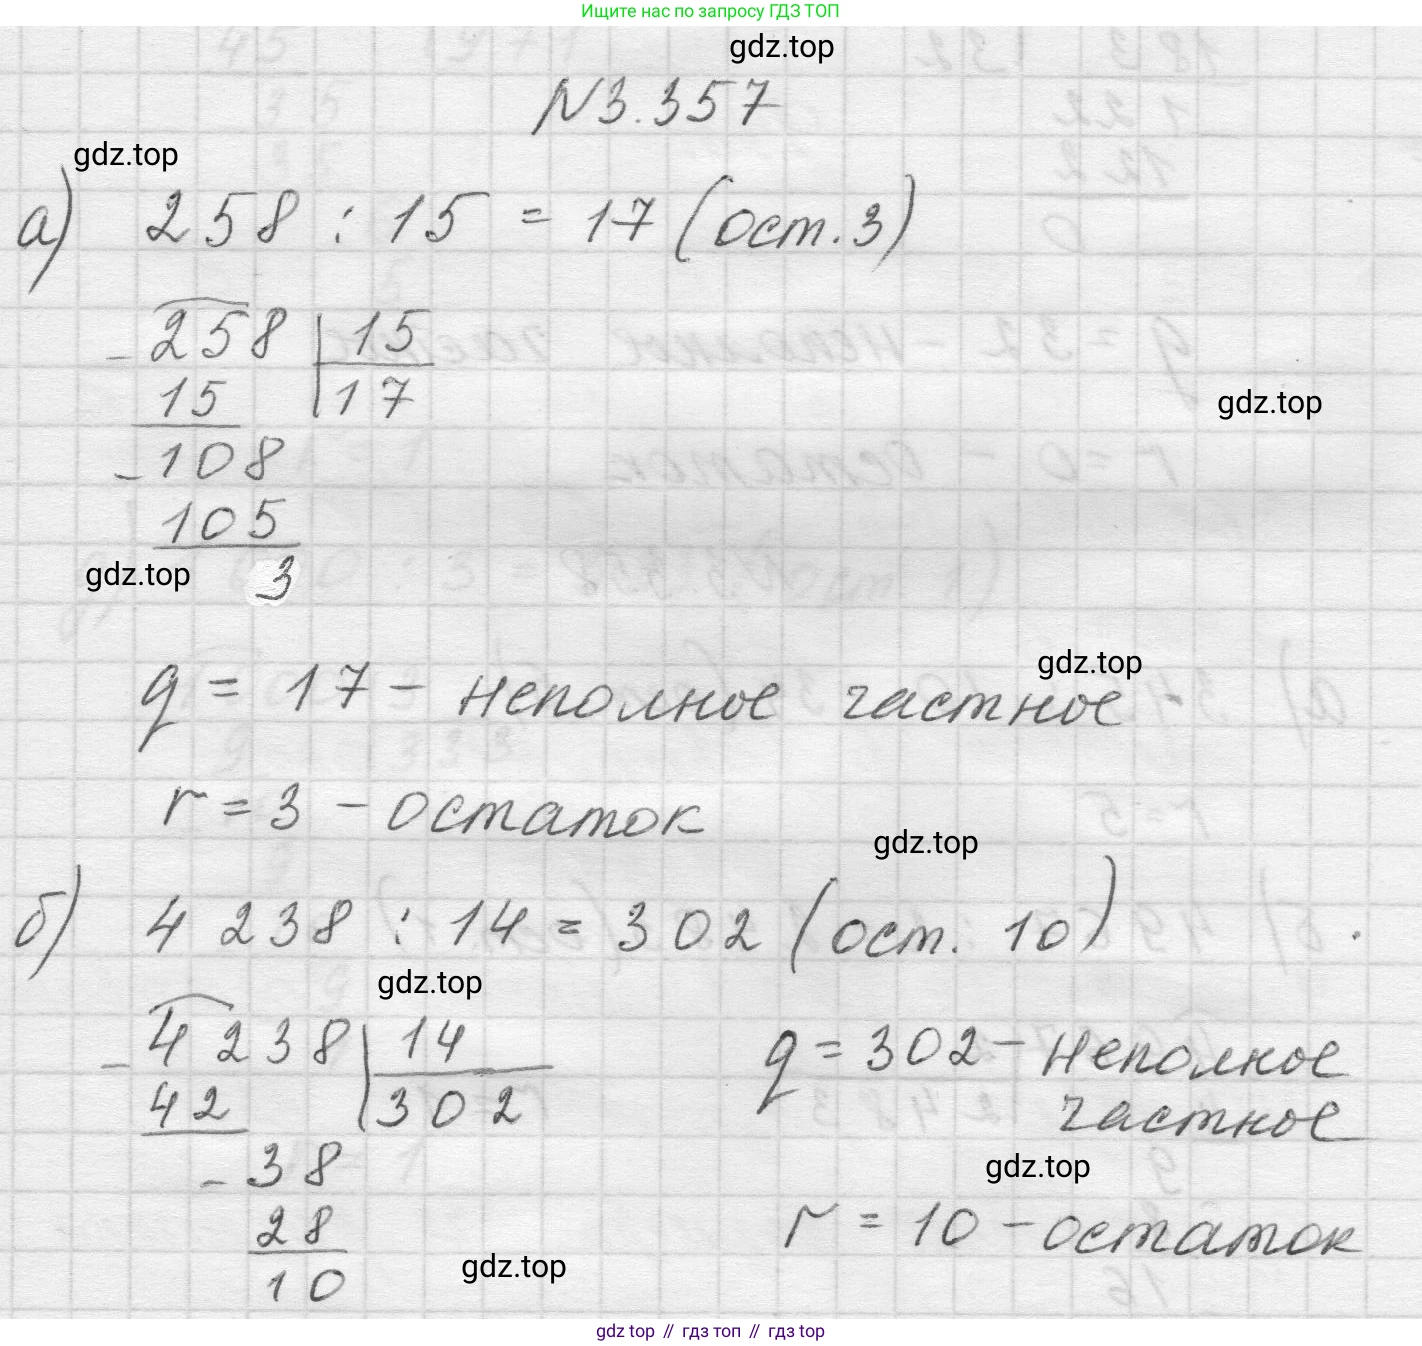 Ищите нас по запросу ГДЗ ТОП
gdz.top
N3.357
gdz.top
а) 258 : 15 = 17 (ост. 3)
- 258 | 15
15 | 17
gdz.top
- 108
105
gdz.top 3
gdz.top
q = 17 - неполное частное
r = 3 - остаток
gdz.top
б) 4 238 : 14 = 302 (ост. 10)
gdz.top
- 4238 | 14
42 | 302
- 38
28
10
q = 302 - неполное
частное
gdz.top
r = 10 - остаток
gdz.top
gdz top // гдз топ // гдз top